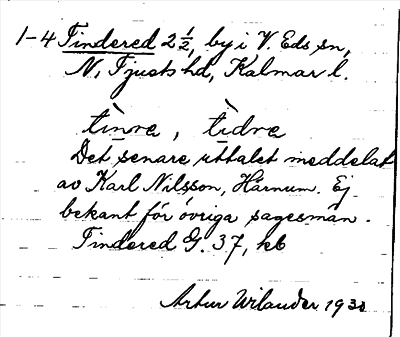 1-4 Tindered 2 1/2, by i V. Eds sn,
N. Tjusts hd, Kalmar l.
tìnrα, tìdrα
Det senare uttalet meddelat
av Karl Nilsson, Härnum. Ej
bekant för övriga sagesmän.
Tindered G. 37, kb
Artur Wilander 1930